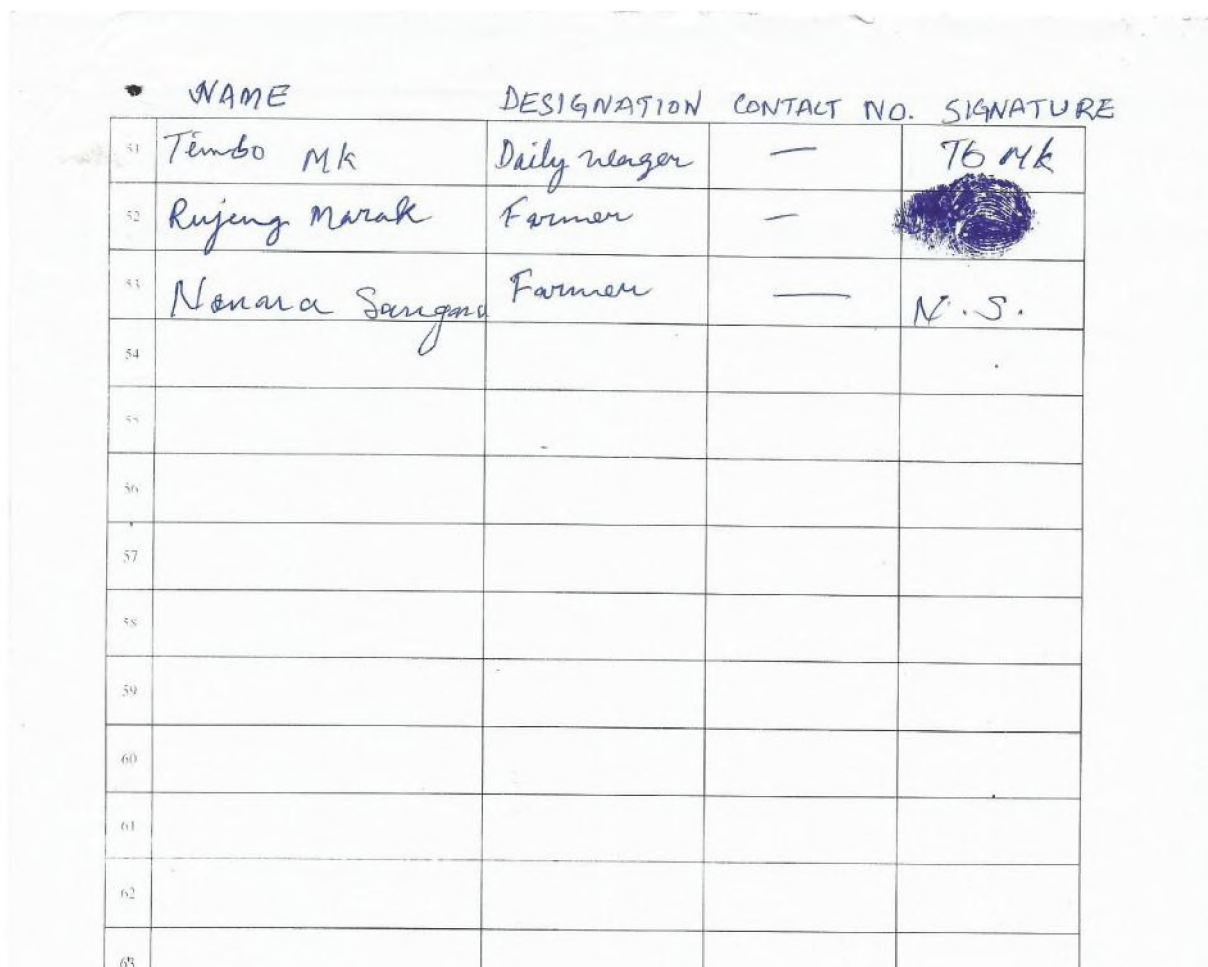 NAME DESIGNATION CONTACT NO. SIGNATURE
51 Timbo Mk Daily wager — T6 Mk
52 Rujeng Marak Farmer —
53 Nonara Sangma Farmer — N.S.
54
55
56
57
58
59
60
61
62
63